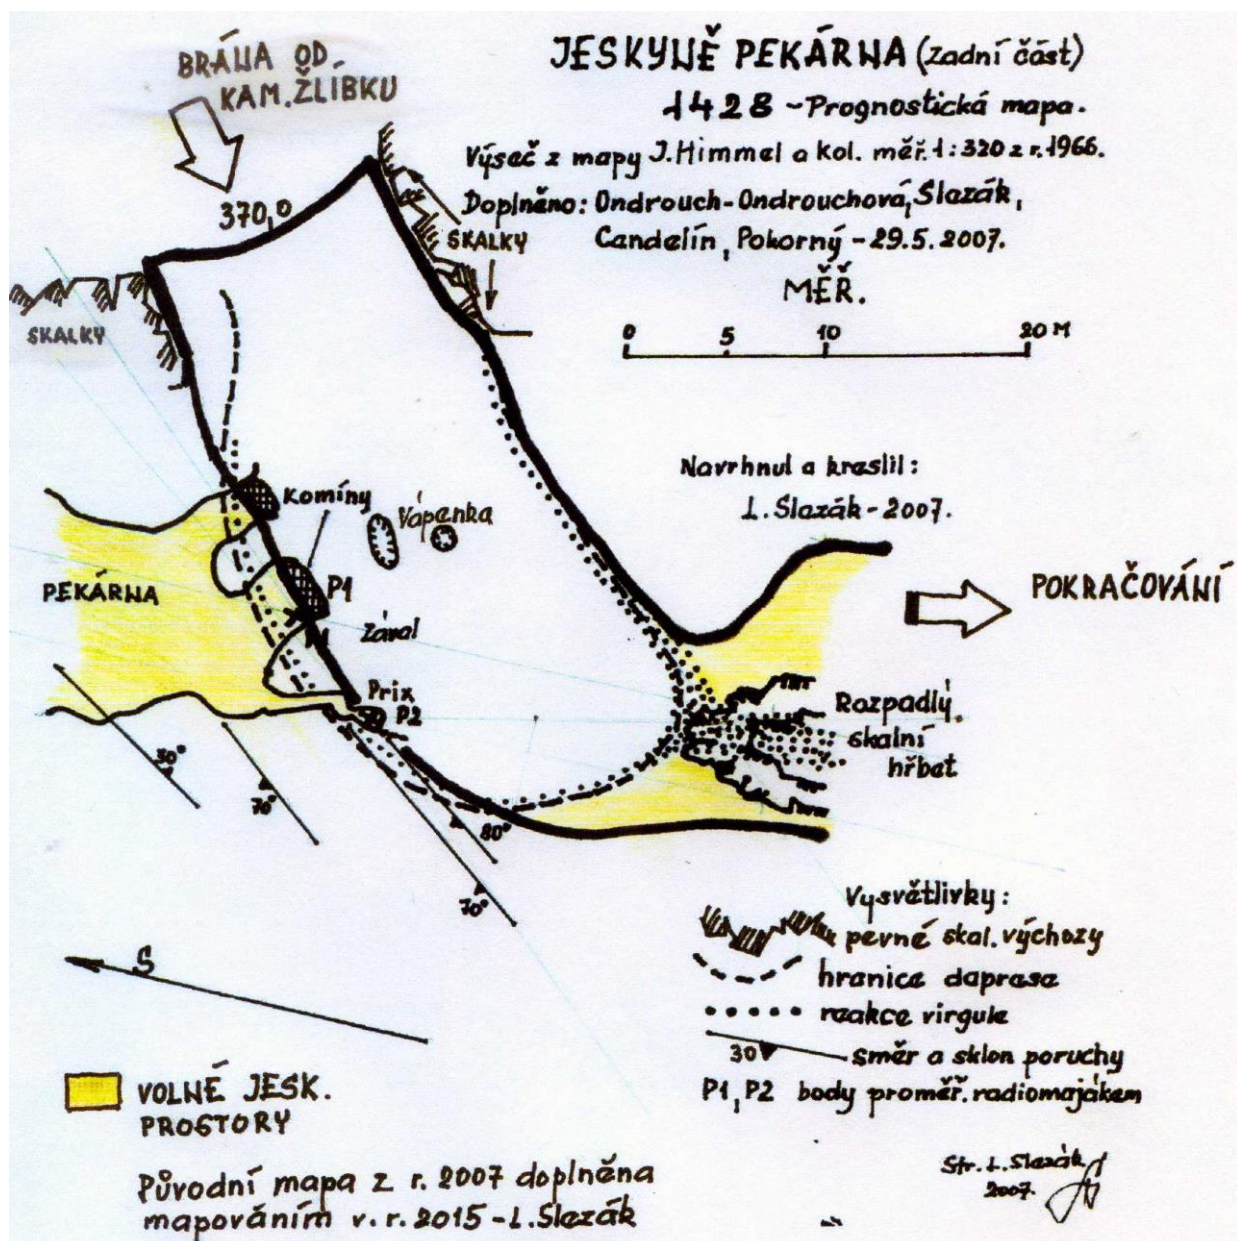 BRÁNA OD.
KAM. ŽLÍBKU
JESKYNĚ PEKÁRNA (Zadní část)
1428 - Prognostická mapa.
Výseč z mapy J. Himmel a kol. měř. 1:320 z r. 1966.
Doplněno: Ondrouch-Ondrouchová, Slezák,
Candelín, Pokorný - 29.5.2007.
MĚŘ.
0 5 10 20 M
370,0
SKALKY
SKALKY
Navrhnul a kreslil:
L. Slezák - 2007.
Komíny
Vápenka
PEKÁRNA
P1
Zával
Prix
P2
POKRAČOVÁNÍ
Rozpadlý
skalní
hřbet
30°
70°
80°
70°
S
Vysvětlivky:
pevné skal. výchozy
hranice deprese
reakce virgule
30 směr a sklon poruchy
P1, P2 body proměř. radiomajákem
VOLNÉ JESK.
PROSTORY
Původní mapa z r. 2007 doplněna
mapováním v. r. 2015 - L. Slezák
Str. L. Slezák
2007.